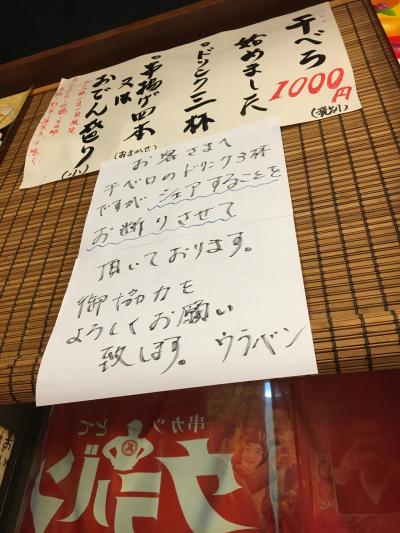 千べろ
1000円
(税別)
始めました
・ドリンク三杯
・串揚げ四本
(おまかせ)
又は
おでん盛り
(小)
お客さまへ
千ベロのドリンク3杯
ですが シェアすることを
お断りさせて
頂いております。
御協力を
よろしくお願い
致します。 ウラバン
串カツ どん
ウラバン